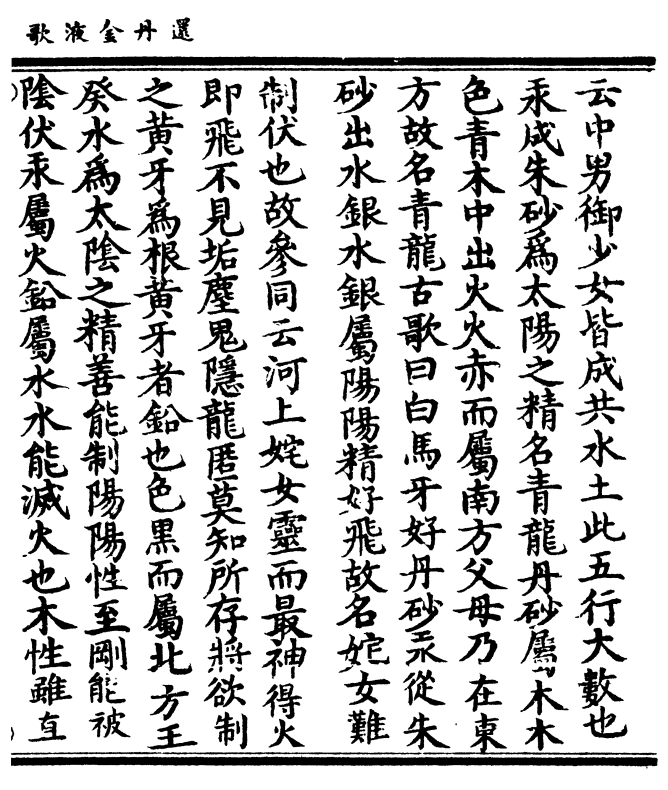 還丹金液歌
云中男御少女皆成共水土此五行大數也
汞成朱砂爲太陽之精名青龍丹砂屬木木
色青木中出火火赤而屬南方父母乃在東
方故名青龍古歌曰白馬牙好丹砂汞從朱
砂出水銀水銀屬陽陽精好飛故名姹女難
制伏也故參同云河上姹女靈而最神得火
即飛不見垢塵鬼隱龍匿莫知所存將欲制
之黃牙爲根黃牙者鉛也色黑而屬北方王
癸水爲太陰之精善能制陽陽性至剛能被
陰伏汞屬火鉛屬水水能滅火也木性雖直